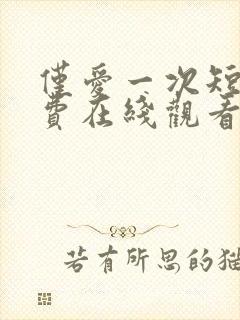 僅愛一次短
費在綫觀看
若有所思的猫